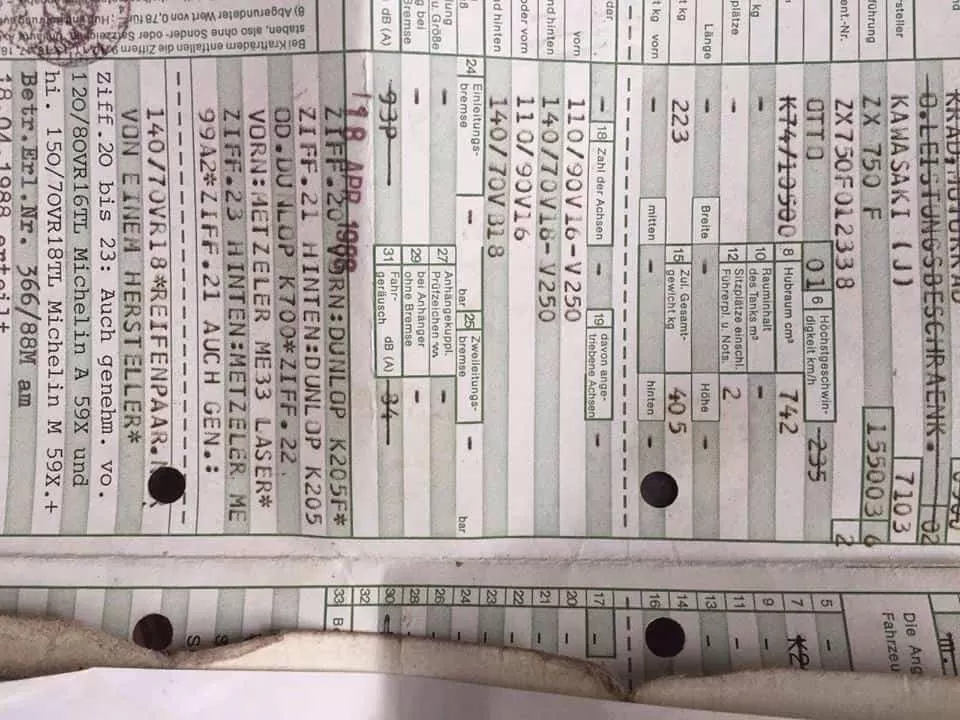 KRAD,MOTORRAD
O.LEISTUNGSBESCHRAENK. 02
rsteller KAWASAKI (J) 7103
führung ZX 750 F 155003 6
ent.-Nr. ZX750F012338 2
OTTO 01 6 Höchstgeschwin-digkeit km/h 235
K74/10500 8 Hubraum cm³ 742
kg - 10 Rauminhalt des Tanks m³ -
plätze - 12 Sitzplätze einschl. Führerpl. u. Nots. 2
Länge - Breite - Höhe -
t kg 223 15 Zul. Gesamt-gewicht kg 405
t kg vorn - mitten - hinten -
der - 18 Zahl der Achsen - 19 davon ange-triebene Achsen -
vorn 110/90V16-V250
nd hinten 140/70V18-V250
oder vorn 110/90V16
nd hinten 140/70VB18
24 Einleitungs-bremse - bar 25 Zweileitungs-bremse - bar
lung u. Größe - 27 Anhängekuppl. Prüfzeichen -
g bei Bremse - 29 bei Anhänger ohne Bremse -
dB (A) 93P 31 Fahr-geräusch dB (A) 84
18 APR 1988
ZIFF.20 VORN:DUNLOP K205F*
ZIFF.21 HINTEN:DUNLOP K205
OD.DUNLOP K700*ZIFF.22
VORN:METZELER ME33 LASER*
ZIFF.23 HINTEN:METZELER ME
99A2*ZIFF.21 AUCH GEN.:
140/70VR18*REIFENPAAR.
VON EINEM HERSTELLER*
Bei Krafträdern entfallen die Ziffern
staben, also ohne Sonder- oder Satzzeichen
8) Abgerundeter Wert von 0,78 für
Ziff.20 bis 23: Auch genehm. vo.
120/80VR16TL Michelin A 59X und
hi. 150/70VR18TL Michelin M 59X.+
Betr.Erl.Nr. 366/88M am
18.04.1988 erteilt
III.
Die Ang
Fahrzeu
5 -
7
9 -
11 -
13 -
14 -
16
17 -
20 -
21 -
22 -
23 -
24 -
26 -
28 -
30
32
33